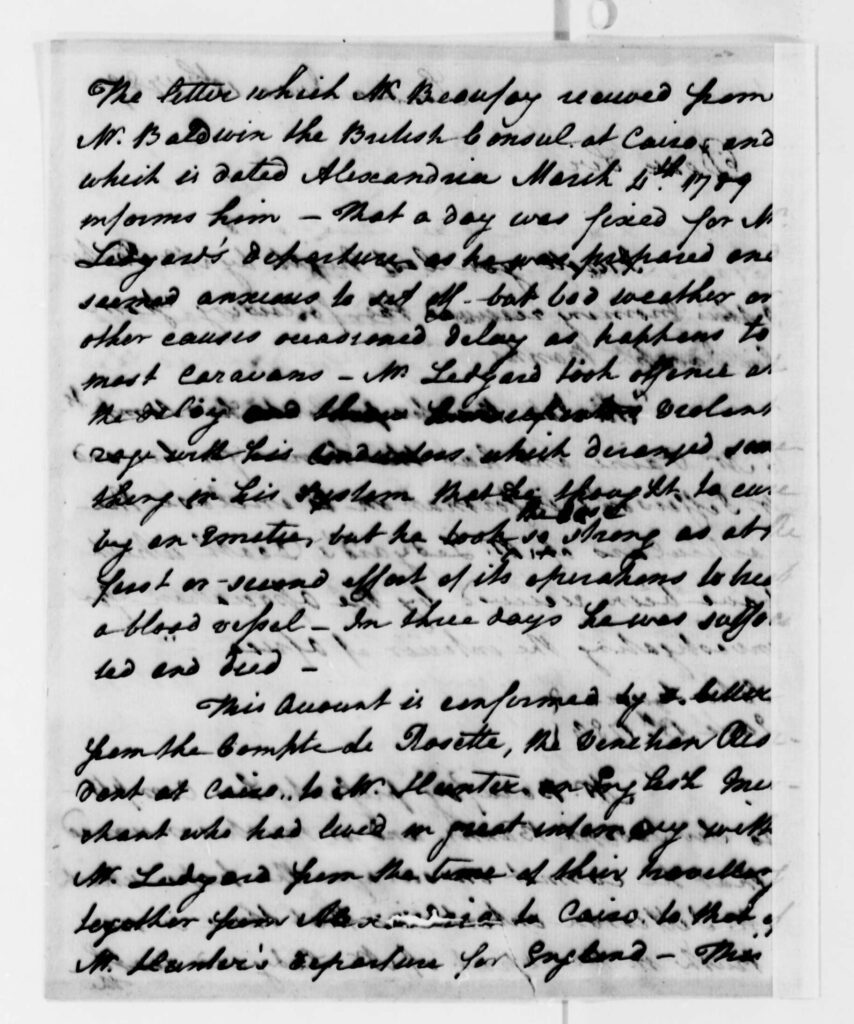 The letter which Mr. Beaufoy received from
Mr. Baldwin the British Consul at Cairo, and
which is dated Alexandria March 4th 1789
informs him – That a day was fixed for Mr
Ledyard's departure, as he was prepared and
seemed anxious to set off – but bad weather or
other causes occasioned delay as happens to
most Caravans – Mr. Ledyard took offence at
the delay and threw himself into a violent
rage with his conductors which deranged some
thing in his system that he thought to cure
by an Emetic, but he took the dose so strong as at the
first or second effect of its operations to break
a blood vessel – In three days he was suffo
ted and died –
This Account is confirmed by a letter
from the Compte de Rosette, the Venetian Resi
dent at Cairo, to Mr. Hunter an English Mer
chant who had lived in great intimacy with
Mr. Ledyard from the time of their travelling
together from Alexandria to Cairo to that of
Mr. Hunter's departure for England – This